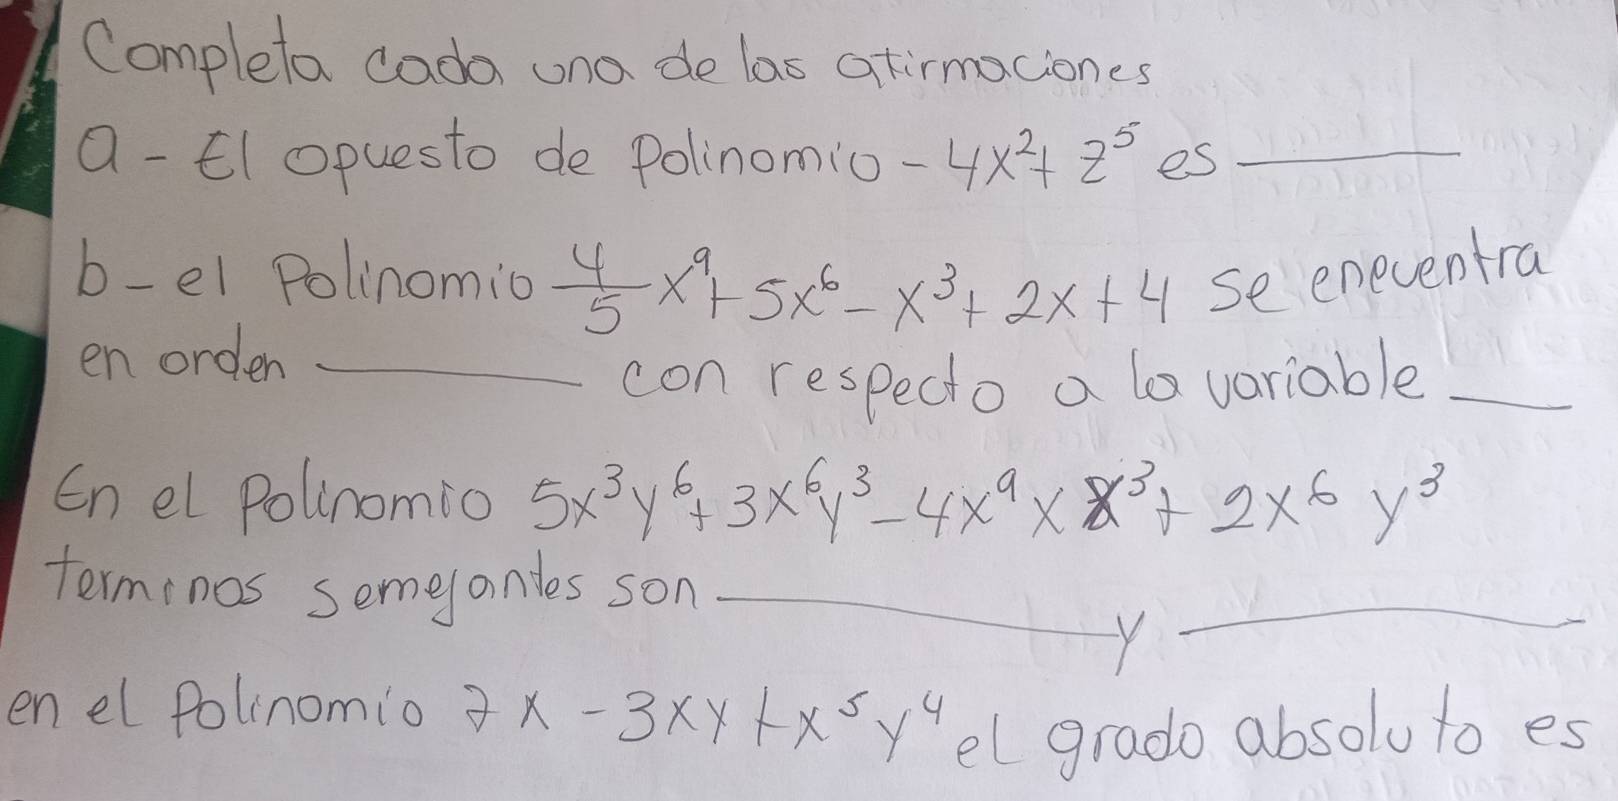 Completa cada una de las afirmaciones
a - El opuesto de Polinomio - 4x² + z⁵ es ______
b - el Polinomio 4/5 x⁹ + 5x⁶ - x³ + 2x + 4 se enecuentra
en orden ______ con respecto a la variable __
En el Polinomio 5x³y⁶ + 3x⁶y³ - 4x⁹x x³ + 2x⁶ y³
terminos semejantes son ______ y ______
en el Polinomio 7x - 3xy + x⁵y⁴ el grado absoluto es